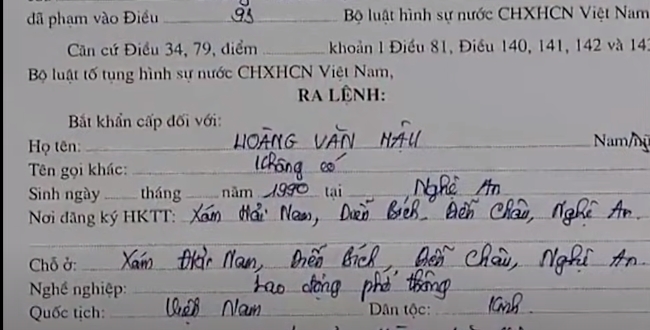 đã phạm vào Điều 93 Bộ luật hình sự nước CHXHCN Việt Nam
Căn cứ Điều 34, 79, điểm khoản 1 Điều 81, Điều 140, 141, 142 và 143
Bộ luật tố tụng hình sự nước CHXHCN Việt Nam,
RA LỆNH:
Bắt khẩn cấp đối với:
Họ tên: HOÀNG VĂN HẬU Nam/Nữ
Tên gọi khác: Không có
Sinh ngày tháng năm 1990 tại Nghệ An
Nơi đăng ký HKTT: Xóm Hải Nam, Diễn Bích, Diễn Châu, Nghệ An.
Chỗ ở: Xóm Hải Nam, Diễn Bích, Diễn Châu, Nghệ An
Nghề nghiệp: Lao động phổ thông
Quốc tịch: Việt Nam Dân tộc: Kinh